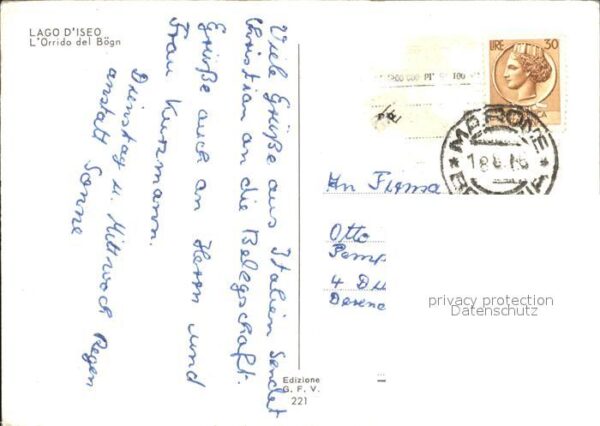 LAGO D'ISEO
L'Orrido del Bögn
Viele Grüße aus Italien sendet
Christian an die Belegschaft.
Grüße auch an Herrn und
Frau Kurzmann.
Dienstag u. Mittwoch Regen
anstatt Sonne
LIRE 30
MARONE
BRESCIA
An Firma
Otto
4 Du
privacy protection
Datenschutz
Edizione
G. F. V.
221